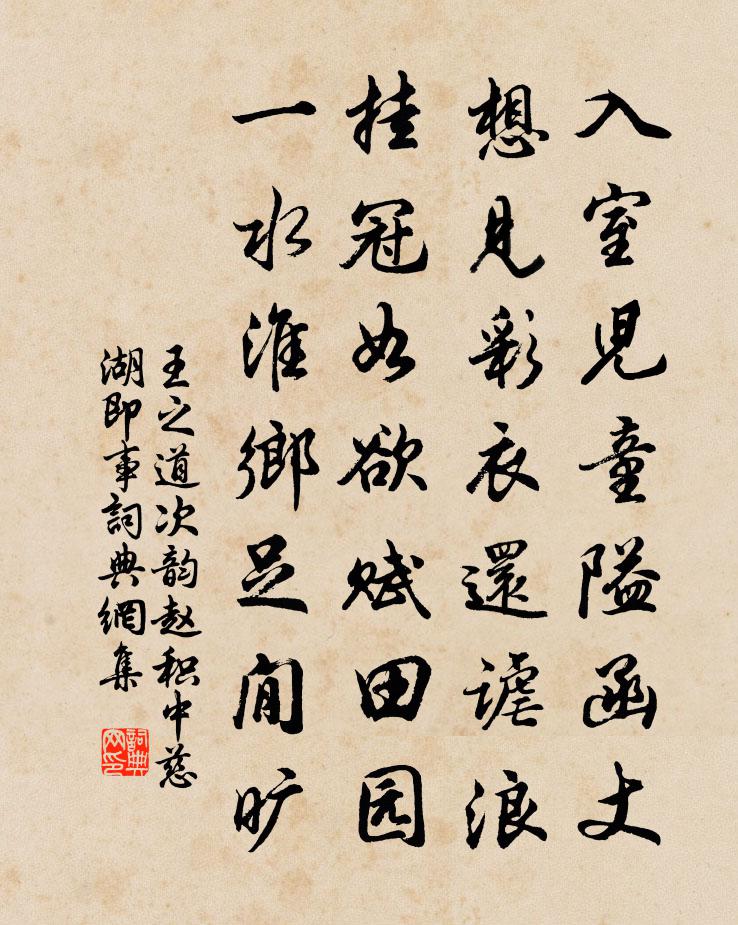 入室児童隘函丈
想見彩衣還謔浪
挂冠如欲赋田园
一水淮鄉足閒旷
王之道次韵赵积中慈
湖即事詞典網集
詞典网印